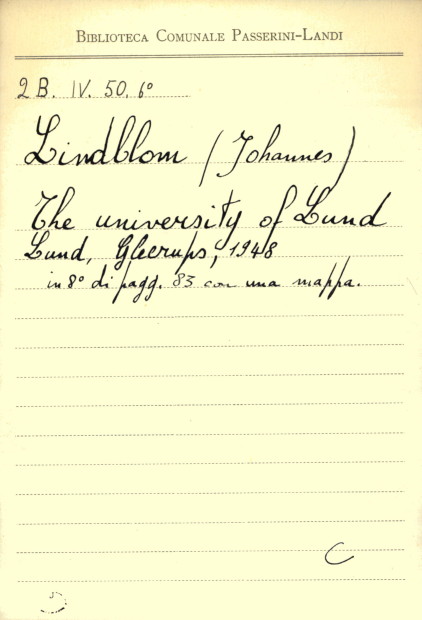 BIBLIOTECA COMUNALE PASSERINI-LANDI
2 B. IV. 50. 6°
Lindblom (Johannes)
The university of Lund
Lund, Gleerups, 1948
in 8° di pagg. 83 con una mappa.
C